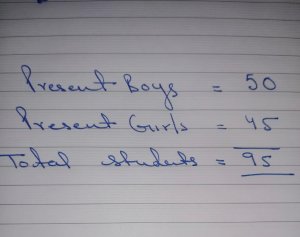 Present Boys = 50
Present Girls = 45
Total students = 95